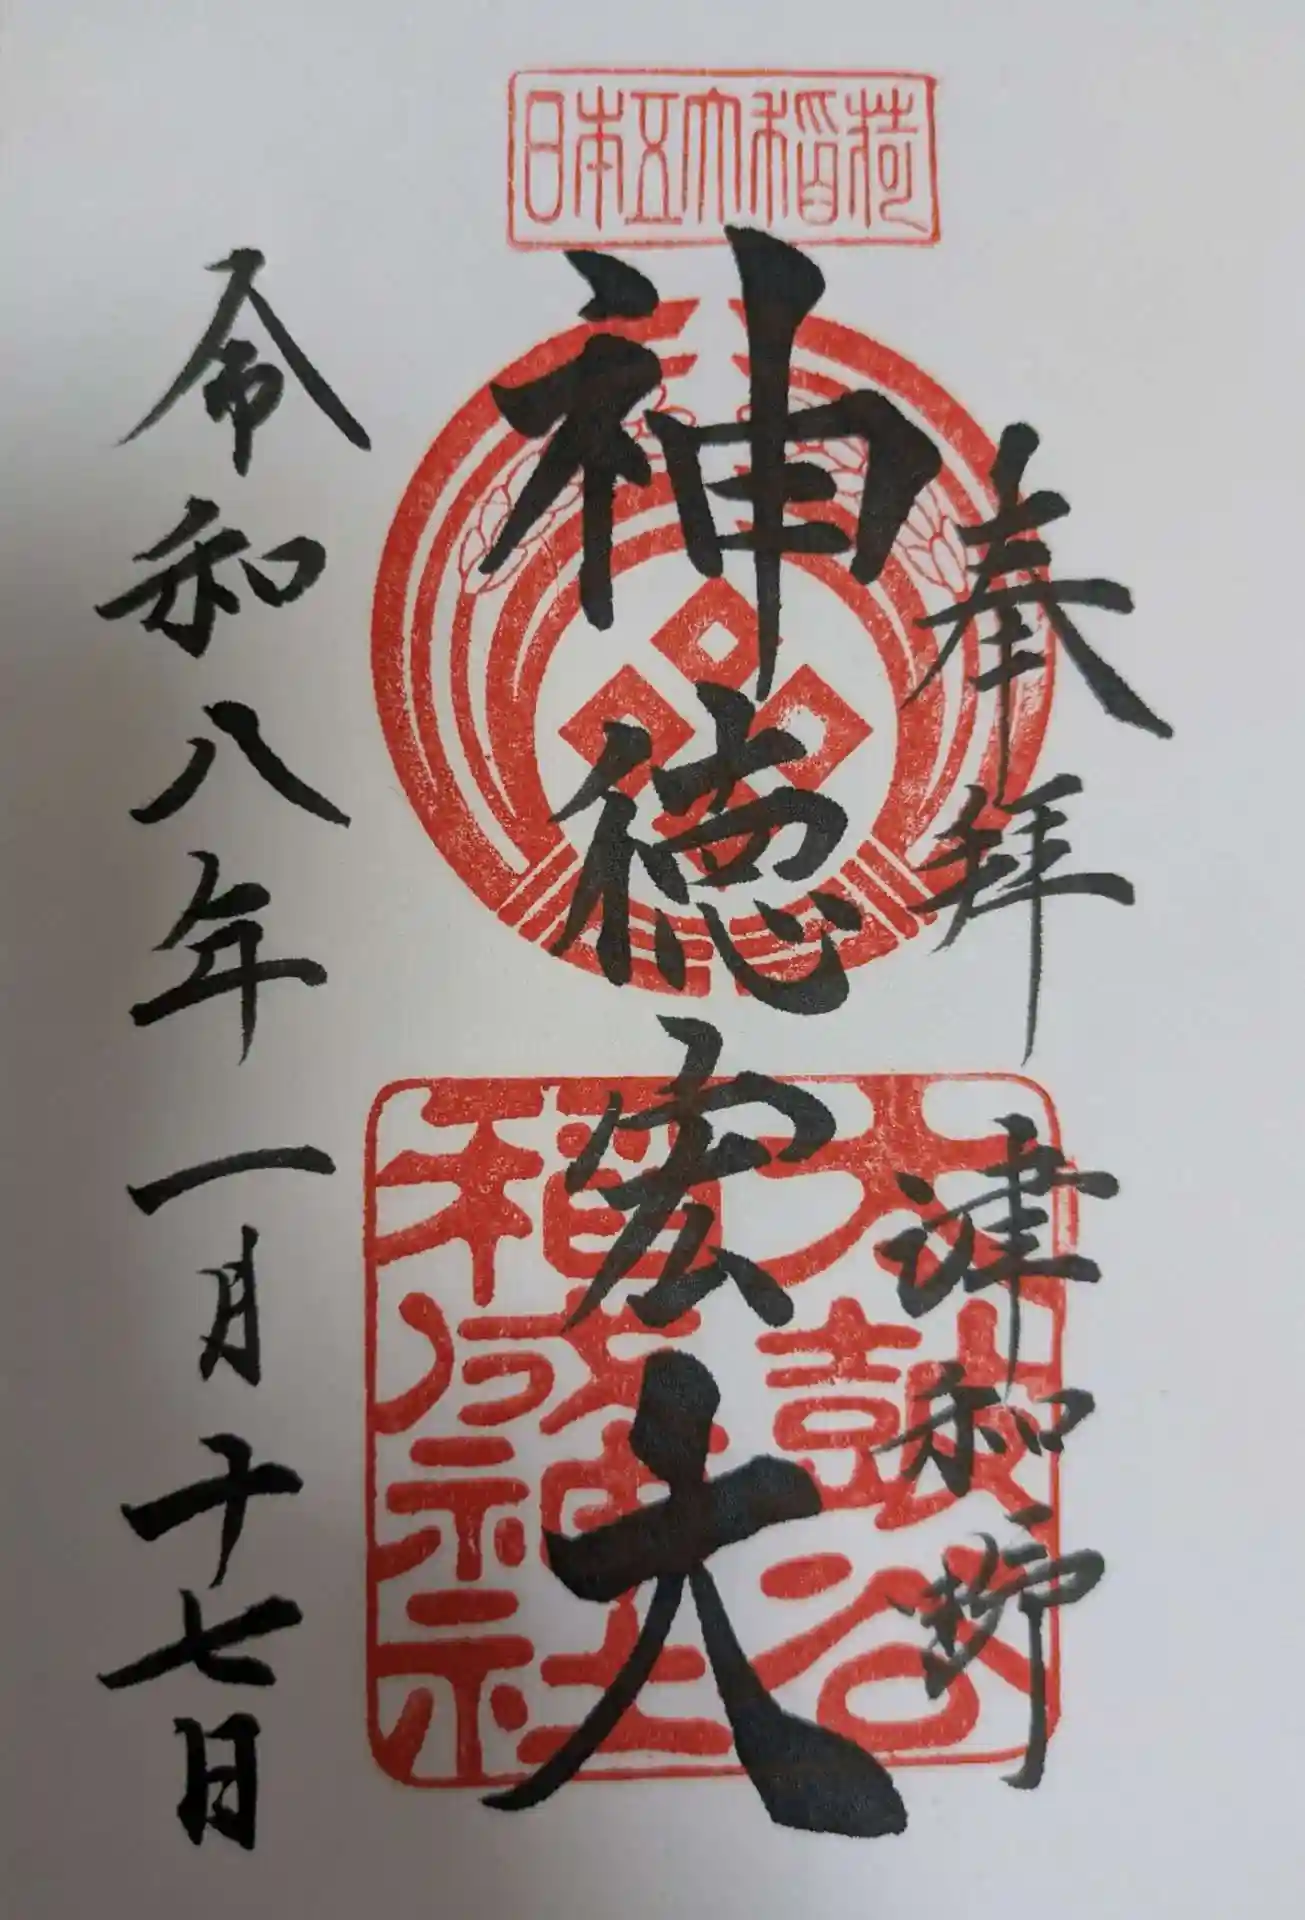 日本五大稲荷
奉拝 津和野
神徳宏大
太皷谷稲成神社
令和八年一月十七日